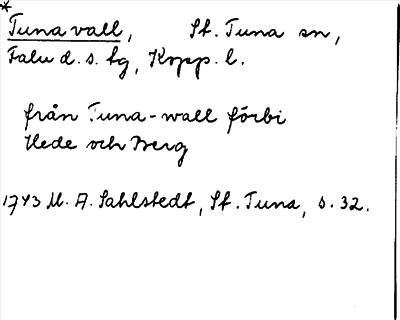 *
Tuna vall, St. Tuna sn,
Falu d. s. tg, Kopp. l.
från Tuna-wall förbi
Hede och Berg
1743 M. A. Sahlstedt, St. Tuna, s. 32.